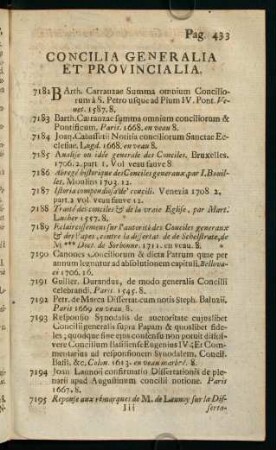 Pag. 433
CONCILIA GENERALIA
ET PROVINCIALIA.
7182 BArth. Carranzae Summa omnium Concilio-
rum à S. Petro usque ad Pium IV. Pont. Ve-
net. 1587. 8.
7183 Barth. Carranzae summa omnium conciliorum &
Pontificum. Paris. 1668. en veau 8.
7184 Joan. Cabassutii Notitia conciliorum Sanctae Ec-
clesiae. Lugd. 1668. en veau 8.
7185 Analise ou idée generale des Conciles. Bruxelles.
1706. 2. part 1. Vol veau fauve 8.
7186 Abregé historique des Conciles generaux, par I. Bouil-
les. Moulins 1703. 12.
7187 Istoria compendiosa de' concili. Venezia 1708 2.
part. 2 vol. veau fauve 12.
7188 Traité des conciles & de la vraie Eglise, par Mart.
Lauber 1557. 8.
7189 Eclaircissemens sur l'autorité des Conciles generaux
& des Papes, contre la dissertat. de de Schelstrate, de
M *** Doct. de Sorbonne. 1711. en veau. 8.
7190 Canones & Conciliorum & dicta Patrum quae per
annum leguntur ad absolutionem capituli. Bellova-
ci 1706. 16.
7191 Guilier. Durandus, de modo generalis Concilii
celebrandi. Paris. 1545. 8.
7192 Petr. de Marca Dissertat. cum notis Steph. Baluzii.
Paris 1669 en veau. 8.
7193 Responsio Synodalis de auctoritate cujuslibet
Concilii generalis supra Papam & quoslibet fide-
les; quodque sine ejus consensu non potuit dissol-
vere Concilium Basiliense Eugenius IV; Et Com-
mentarius ad responsionem Synodalem. Concil.
Basil. &c, Colon. 1613. en veau marbré. 8.
7194 Joan Launoii confirmatio Dissertationis de ple-
narii apud Augustinum concilii notione. Paris
1667. 8.
7195 Reponse aux remarques de M. de Launoy sur la Dis-
Iii serta-